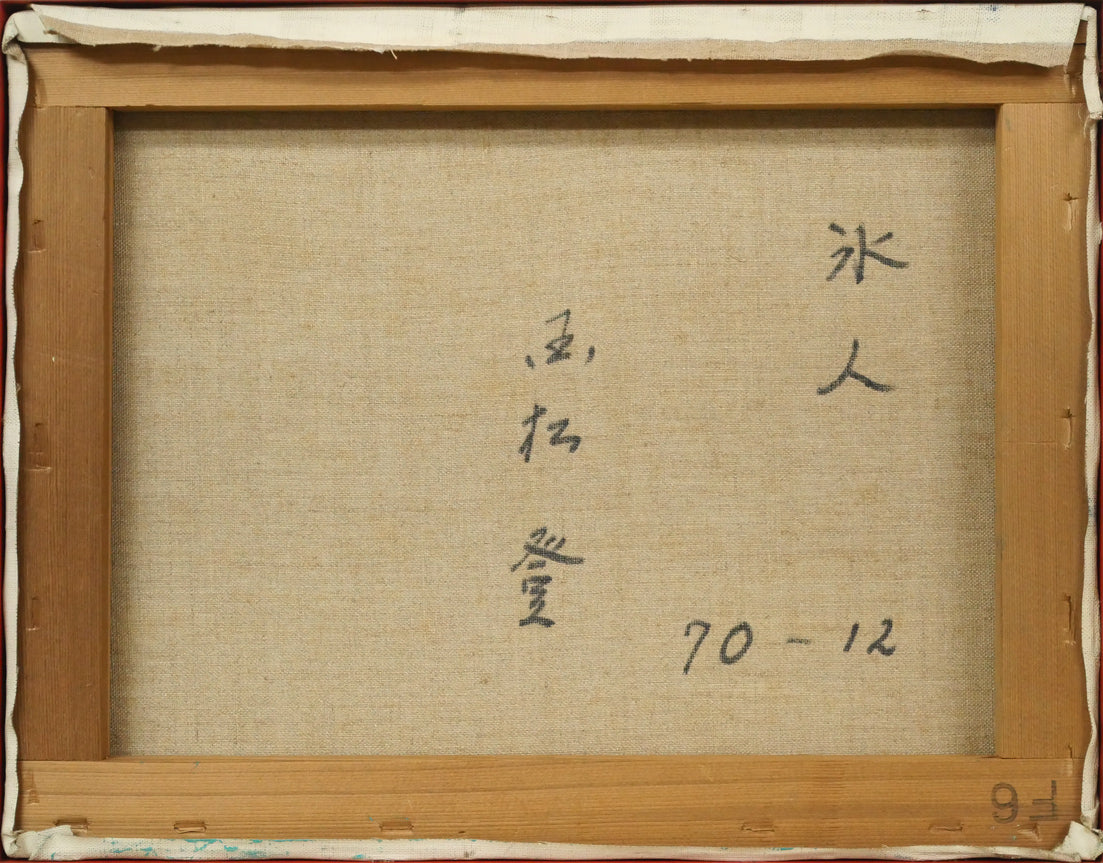 氷人
70-12
国松 登
F6